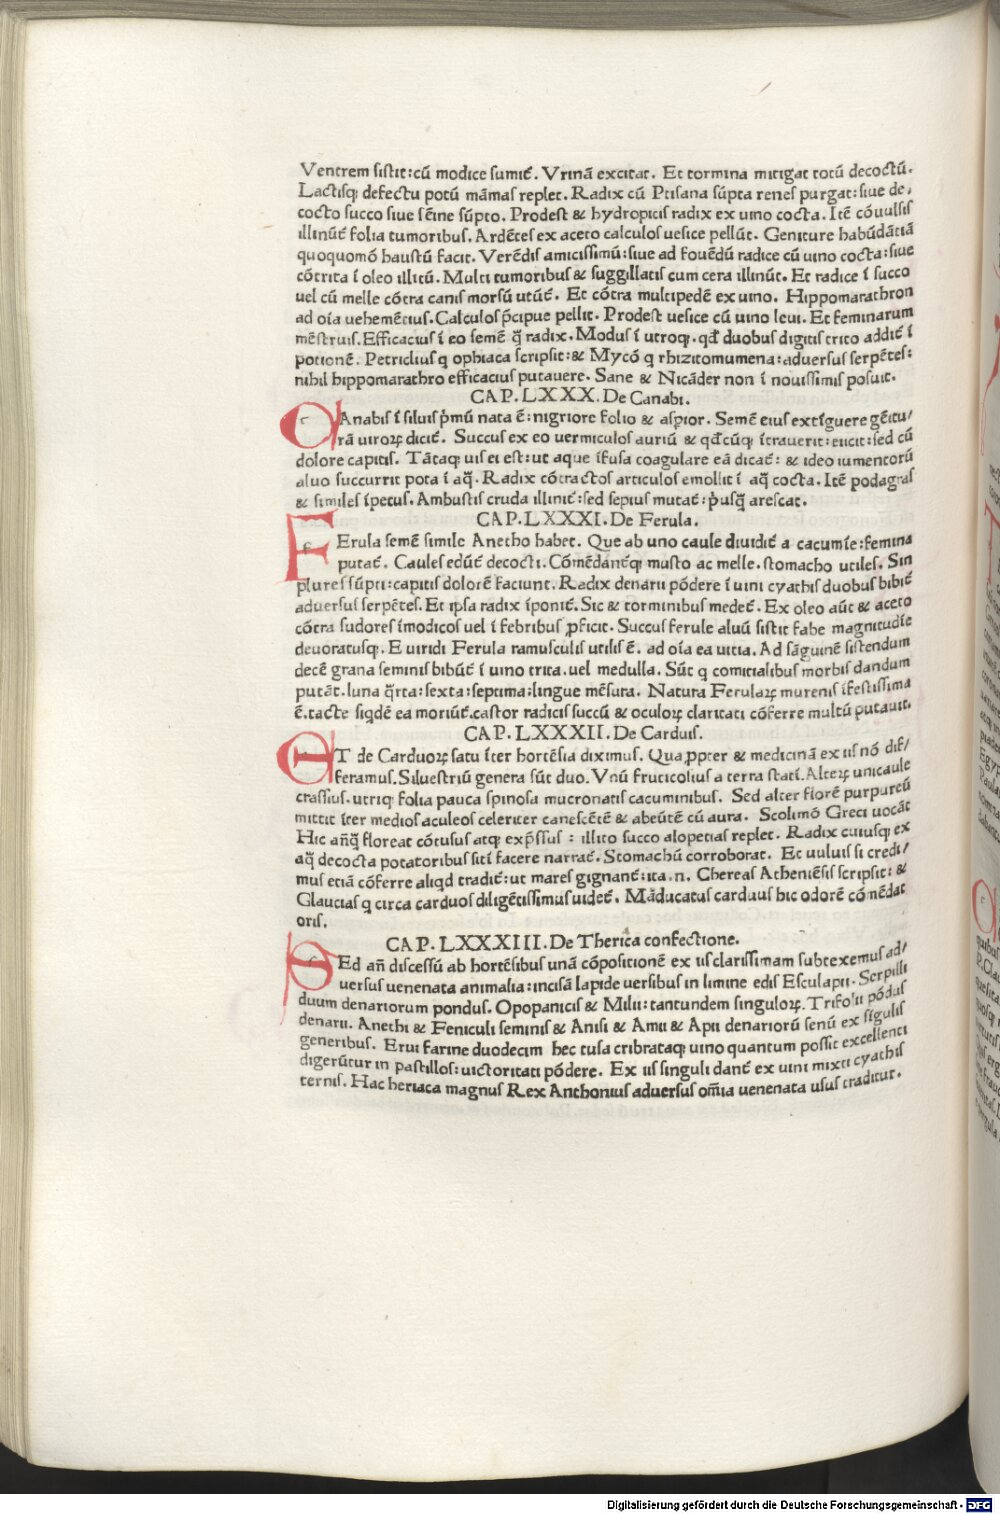 Ventrem sistit:cū modice sumit᷑. Vrinā excitat. Et tormina mitigat totū decoctū.
Lactisq; defectu potū māmas replet. Radix cū Ptisana sūpta renes purgat:siue de,
cocto succo siue sēine sūpto. Prodest & hydropicis radix ex uino cocta. Itē cōuulsis
illinūt᷑ folia tumoribus. Ardētes ex aceto calculos uesice pellūt. Geniture habūdātiā
quoquomō haustū facit. Verēdis amicissimū:siue ad fouēdū radice cū uino cocta:siue
cōtrita ī oleo illitū. Multi tumoribus & suggillatis cum cera illinūt. Et radice ī succo
uel cū melle cōtra canis morsū utūt᷑. Et cōtra multipedē ex uino. Hippomarathron
ad oīa uehemētius. Calculos p̄cipue pellit. Prodest uesice cū uino leui. Et feminarum
mēstruis. Efficacius ī eo semē q̄ radix. Modus ī utroq;. qd̄ duobus digitis trito addit᷑ ī
potionē. Petriclius q ophiaca scripsit:& Mycō q rhizitomumena:aduersus serpētes:
nihil hippomarathro efficacius putauere. Sane & Nicāder non ī nouissimis posuit.
CAP.LXXX.De Canabi.
CAnabis ī siluis p̄mū nata ē:nigriore folio & asp̄ior. Semē eius extīguere gēitu/
rā uiroꝝ dicit᷑. Succus ex eo uermiculos auriū & qd̄cūq; ītrauerit:eiicit:sed cū
dolore capitis. Tātaq; uis ei est:ut aque īfusa coagulare eā dicat᷑: & ideo iumentorū
aluo succurrit pota ī aq̄. Radix cōtractos articulos emollit ī aq̄ cocta. Itē podagras
& similes īpetus. Ambustis cruda illinit᷑:sed sepius mutat᷑:p̄usq̄ arescat.
CAP.LXXXI.De Ferula.
FErula semē simile Anetho habet. Que ab uno caule diuidit᷑ a cacumīe:femina
putat᷑. Caules edūt᷑ decocti. Cōmēdant᷑q; musto ac melle. stomacho utiles. Sin
plures sūpti:capitis dolorē faciunt. Radix denarii pōdere ī uini cyathis duobus bibit᷑
aduersus serpētes. Et ipsa radix īponit᷑. Sic & torminibus medet᷑. Ex oleo aūt & aceto
cōtra sudores īmodicos uel ī febribus ꝓficit. Succus ferule aluū sistit fabe magnitudīe
deuoratusq;. E uiridi Ferula ramusculis utilis ē. ad oīa ea uitia. Ad sāguinē sistendum
decē grana seminis bibūt᷑ ī uino trita. uel medulla. Sūt q comitialibus morbis dandum
putāt. luna q̄rta:sexta:septima:lingue mēsura. Natura Ferulaꝝ murenis īfestissima
ē. tacte siqdē ea moriūt᷑. castor radicis succū & oculoꝝ claritati cōferre multū putauit.
CAP.LXXXII.De Carduis.
ET de Carduoꝝ satu īter hortēsia diximus. Qua ꝓpter & medicinā ex iis nō dif/
feramus. Siluestriū genera sūt duo. Vnū fruticosius a terra statī. Alteꝝ unicaule
crassius. utriq; folia pauca spinosa mucronatis cacuminibus. Sed alter florē purpureū
mittit īter medios aculeos celeriter canescētē & abeūtē cū aura. Scolimō Greci uocāt
Hic an̄q̄ floreat cōtusus atq; exp̄ssus : illito succo alopetias replet. Radix cuiusq; ex
aq̄ decocta potatoribus sitī facere narrat᷑. Stomachū corroborat. Et uuluis si credi/
mus etiā cōferre aliqd tradit᷑:ut mares gignant᷑:ita.n. Chereas Atheniēsis scripsit: &
Glaucias q circa carduos diligētissimus uidet᷑. Māducatus carduus hic odorē cōmēdat
oris.
CAP.LXXXIII.De Therica confectione.
SEd an̄ discessū ab hortēsibus unā cōpositionē ex iis clarissimam subtexemus ad/
uersus uenenata animalia:incisā lapide uersibus in limine edis Esculapii. Serpilli
duum denariorum pondus. Opopanicis & Milii:tantundem singuloꝝ. Trifolii pōdus
denarii. Anethi & Feniculi seminis & Anisi & Amii & Apii denariorū senū ex sīgulis
generibus. Erui farine duodecim hec tusa cribrataq; uino quantum possit excellenti
digerūtur in pastillos:uictoritati pōdere. Ex iis singuli dant᷑ ex uini mixti cyathis
ternis. Hac heriaca magnus Rex Anthonius aduersus om̄ia uenenata usus traditur.
Digitalisierung gefördert durch die Deutsche Forschungsgemeinschaft - DFG